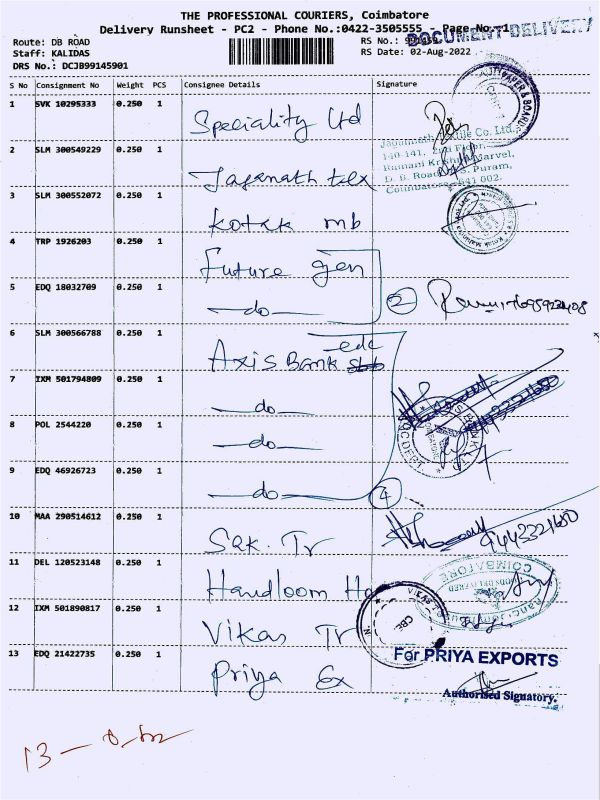 THE PROFESSIONAL COURIERS, Coimbatore
Delivery Runsheet - PC2 - Phone No.:0422-3505555 - Page No. 1
DOCUMENT DELIVERY
Route: DB ROAD
RS No.:
Staff: KALIDAS
RS Date: 02-Aug-2022
DRS No.: DCJB99145901
S No Consignment No Weight PCS Consignee Details Signature
1 SVK 10295333 0.250 1
Speciality Ltd
PAPER & BOARD
2 SLM 300549229 0.250 1
Jaganath tex
Jagannath Textile Co. Ltd.,
140-141, 2nd Floor,
Ramani Krishna Marvel,
D. B. Road, R.S. Puram,
Coimbatore - 641 002.
3 SLM 300552072 0.250 1
Kotak mb
4 TRP 1926203 0.250 1
Future gen
5 EDQ 18032709 0.250 1
—do—
2
6 SLM 300566788 0.250 1
Axis Bank edc
7 IXM 501794809 0.250 1
—do—
8 POL 2544220 0.250 1
—do—
9 EDQ 46926723 0.250 1
—do—
4
10 MAA 290514612 0.250 1
SRK. Tr
9443321680
11 DEL 120523148 0.250 1
Handloom Ho
COIMBATORE
12 IXM 501890817 0.250 1
Vikas Tr
VIKAS
CBE
13 EDQ 21422735 0.250 1
Priya Ex
For PRIYA EXPORTS
Authorised Signatory.
13 —